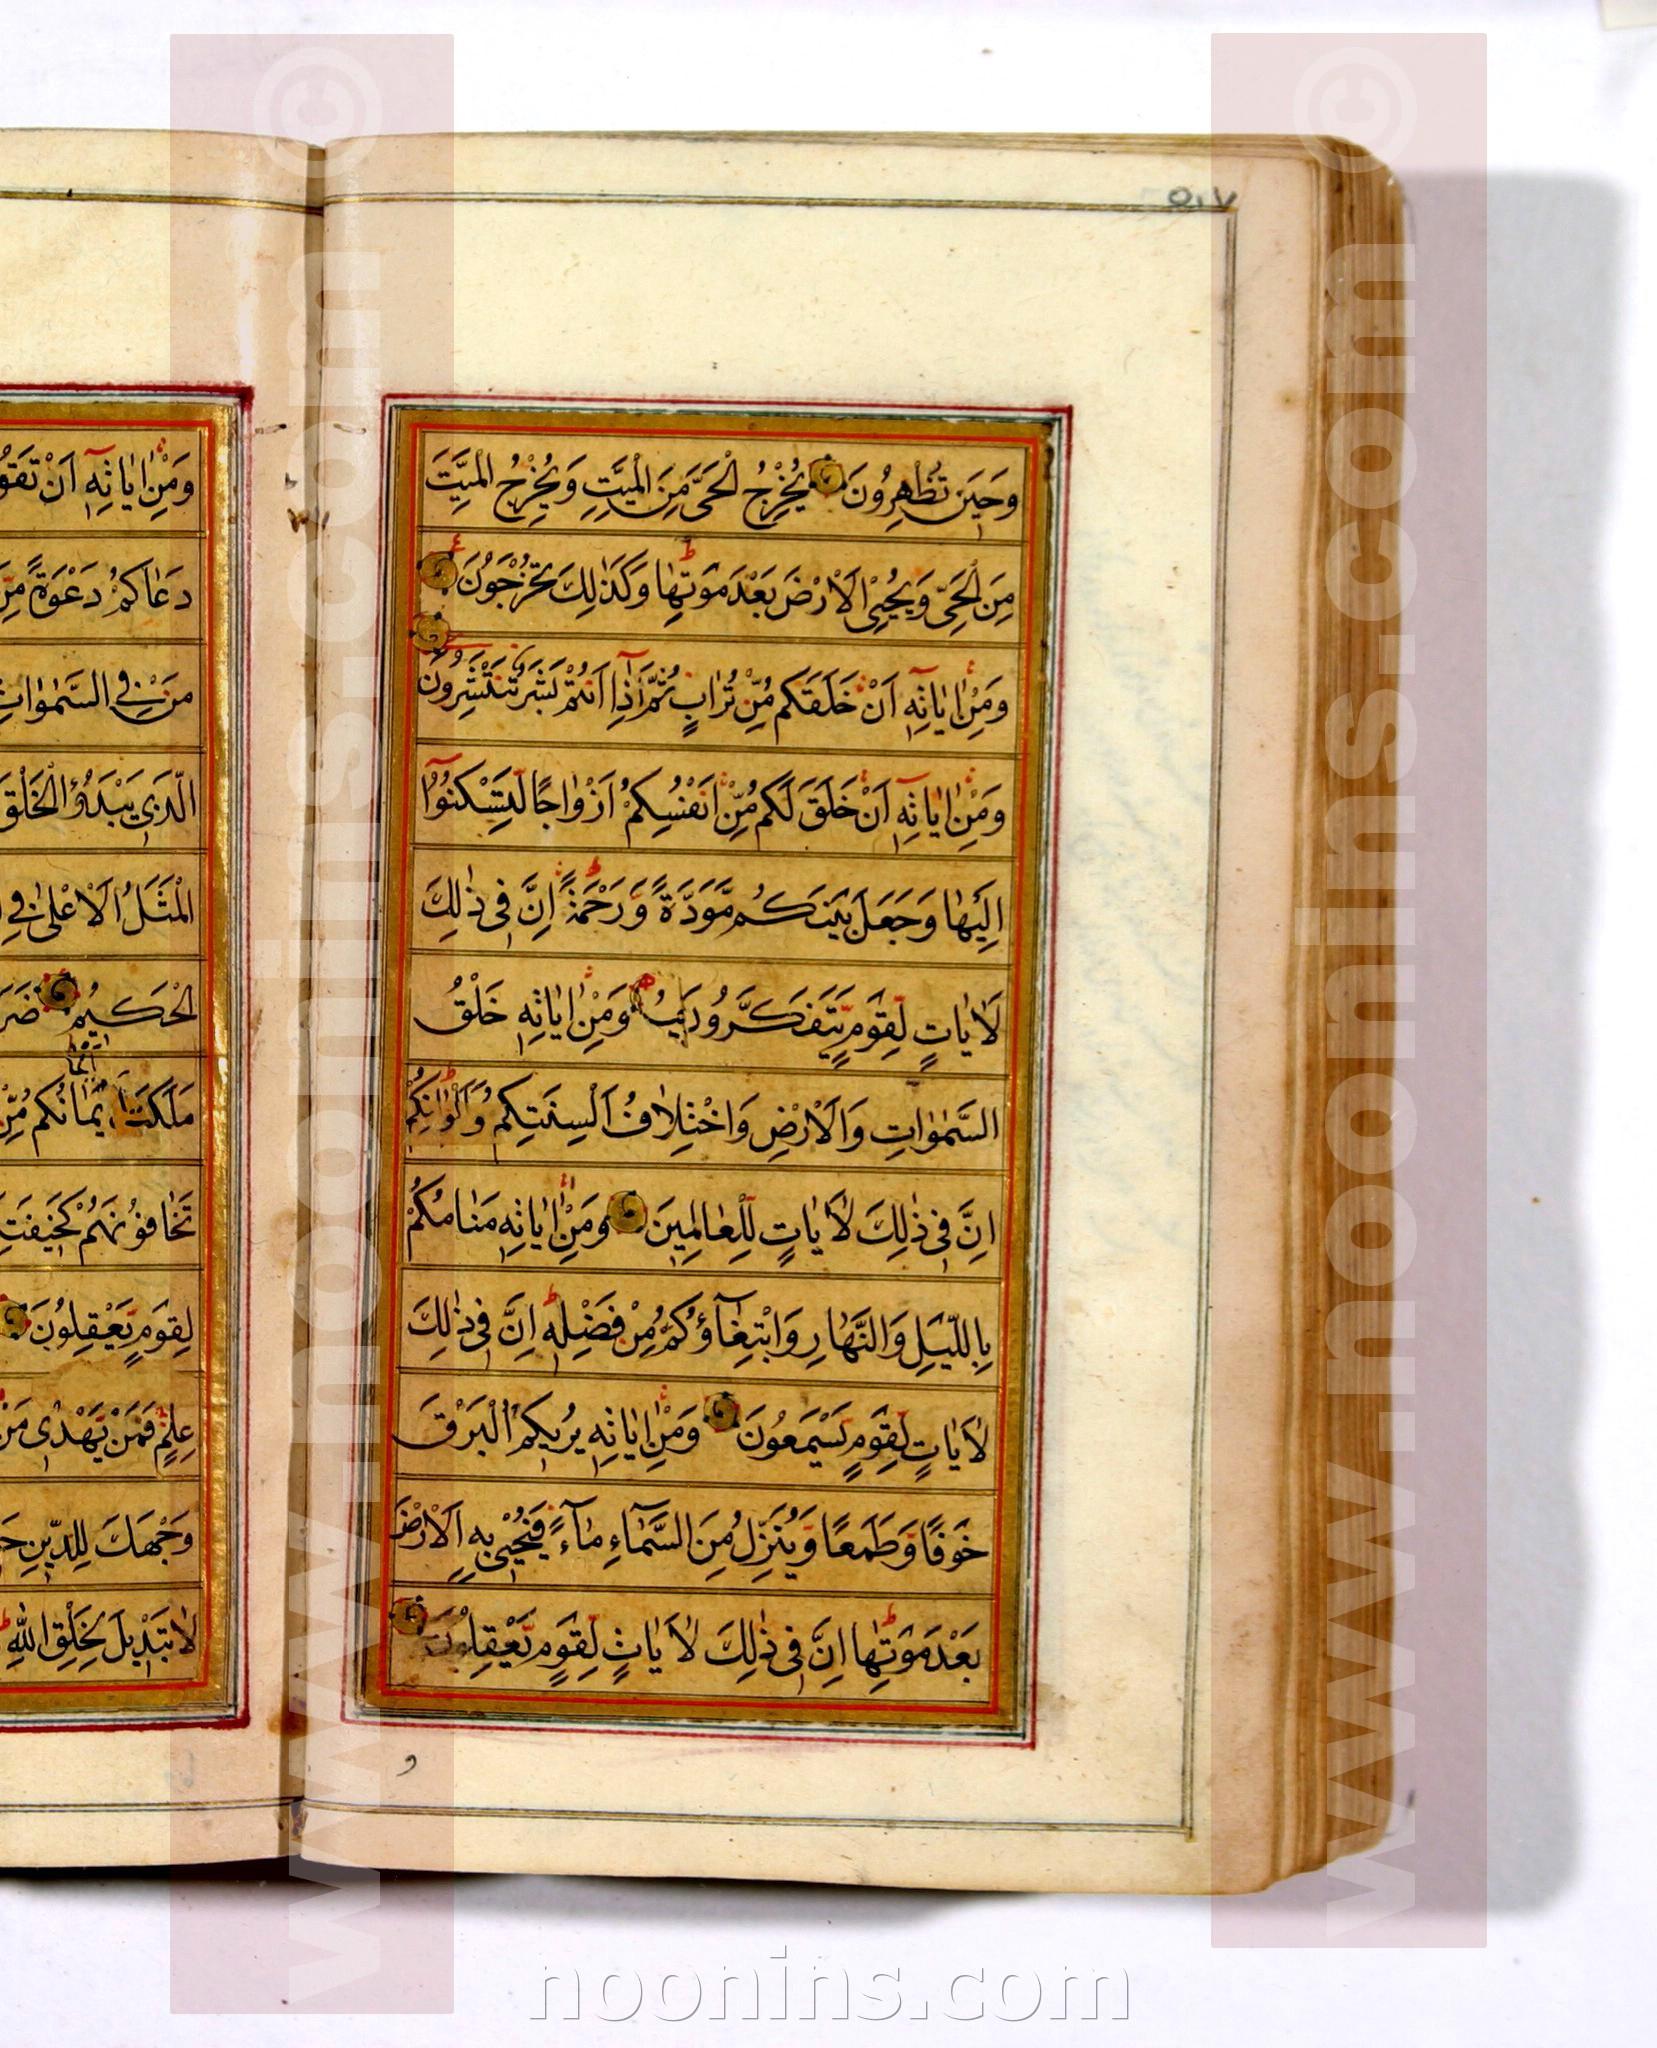 ٥٠٧
وَحِينَ تُظْهِرُونَ يُخْرِجُ الْحَيَّ مِنَ الْمَيِّتِ وَيُخْرِجُ الْمَيِّتَ
مِنَ الْحَيِّ وَيُحْيِي الْاَرْضَ بَعْدَ مَوْتِهَا وَكَذٰلِكَ تُخْرَجُونَ
وَمِنْ اٰيَاتِهِ اَنْ خَلَقَكُم مِّنْ تُرَابٍ ثُمَّ اِذَا اَنْتُمْ بَشَرٌ تَنْتَشِرُونَ
وَمِنْ اٰيَاتِهِ اَنْ خَلَقَ لَكُم مِّنْ اَنْفُسِكُمْ اَزْوَاجًا لِّتَسْكُنُوا
اِلَيْهَا وَجَعَلَ بَيْنَكُم مَّوَدَّةً وَرَحْمَةً اِنَّ فِي ذٰلِكَ
لَاٰيَاتٍ لِّقَوْمٍ يَتَفَكَّرُونَ وَمِنْ اٰيَاتِهِ خَلْقُ
السَّمٰوَاتِ وَالْاَرْضِ وَاخْتِلَافُ اَلْسِنَتِكُمْ وَاَلْوَانِكُمْ
اِنَّ فِي ذٰلِكَ لَاٰيَاتٍ لِّلْعَالِمِينَ وَمِنْ اٰيَاتِهِ مَنَامُكُمْ
بِاللَّيْلِ وَالنَّهَارِ وَابْتِغَاؤُكُمْ مِنْ فَضْلِهِ اِنَّ فِي ذٰلِكَ
لَاٰيَاتٍ لِّقَوْمٍ يَسْمَعُونَ وَمِنْ اٰيَاتِهِ يُرِيكُمُ الْبَرْقَ
خَوْفًا وَطَمَعًا وَيُنَزِّلُ مِنَ السَّمَاءِ مَاءً فَيُحْيِي بِهِ الْاَرْضَ
بَعْدَ مَوْتِهَا اِنَّ فِي ذٰلِكَ لَاٰيَاتٍ لِّقَوْمٍ يَعْقِلُونَ
و
وَمِنْ اٰيَاتِهِ اَنْ تَقُو
دَعَاكُمْ دَعْوَةً مِّنَ
مَنْ فِي السَّمٰوَاتِ
الَّذِي يَبْدَؤُ الْخَلْقَ
الْمَثَلُ الْاَعْلٰى فِي
الْحَكِيمُ ضَرَ
مَلَكَتْ اَيْمَانُكُم مِّنْ
تَخَافُونَهُمْ كَخِيفَتِ
لِقَوْمٍ يَعْقِلُونَ
عِلْمٍ فَمَنْ يَهْدِي مَنْ
وَجْهَكَ لِلدِّينِ حَ
لَا تَبْدِيلَ لِخَلْقِ اللّٰهِ
www.noonins.com ©
www.noonins.com ©
noonins.com